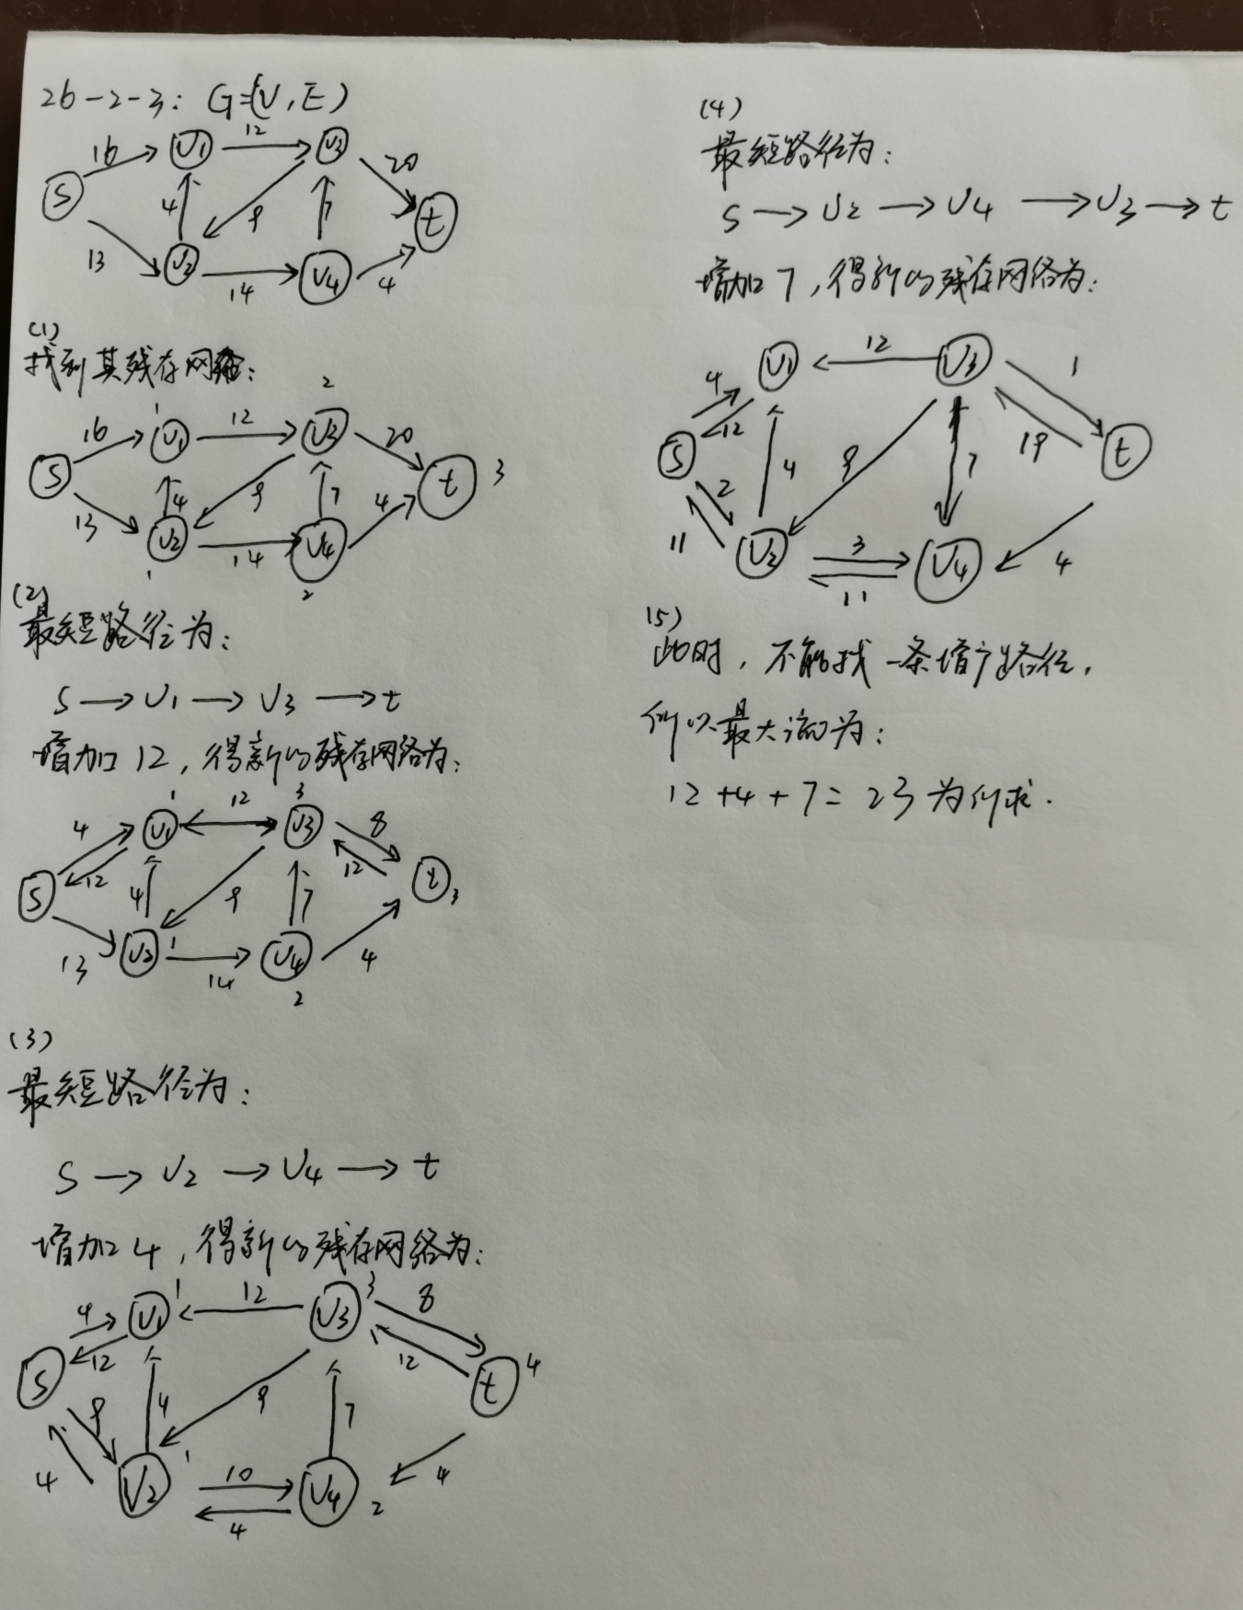 26-2-3: G=(V,E)
16 V1 12 V3 20
S 4 9 7 t
13 V2 14 V4 4
(1)
找到其残存网络:
1 2
16 V1 12 V3 20
S 4 9 7 4 t 3
13 V2 14 V4
1 2
(2)
最短路径为:
S → V1 → V3 → t
增加 12, 得新的残存网络为:
1 3
4 V1 12 V3 8
S 12 4 9 7 12 t 3
13 V2 1 14 V4 4
2
(3)
最短路径为:
S → V2 → V4 → t
增加 4, 得新的残存网络为:
4 V1 1 12 V3 3 8
S 12 12 t 4
9 4 9 7
4 V2 1 10 V4 2 4
4
(4)
最短路径为:
S → V2 → V4 → V3 → t
增加 7, 得新的残存网络为:
4 V1 12 V3 1
S 12 19 t
2 4 9 7
11 V2 3 V4 4
11
(5)
此时, 不能找一条增广路径,
所以最大流为:
12+4+7=23 为所求.